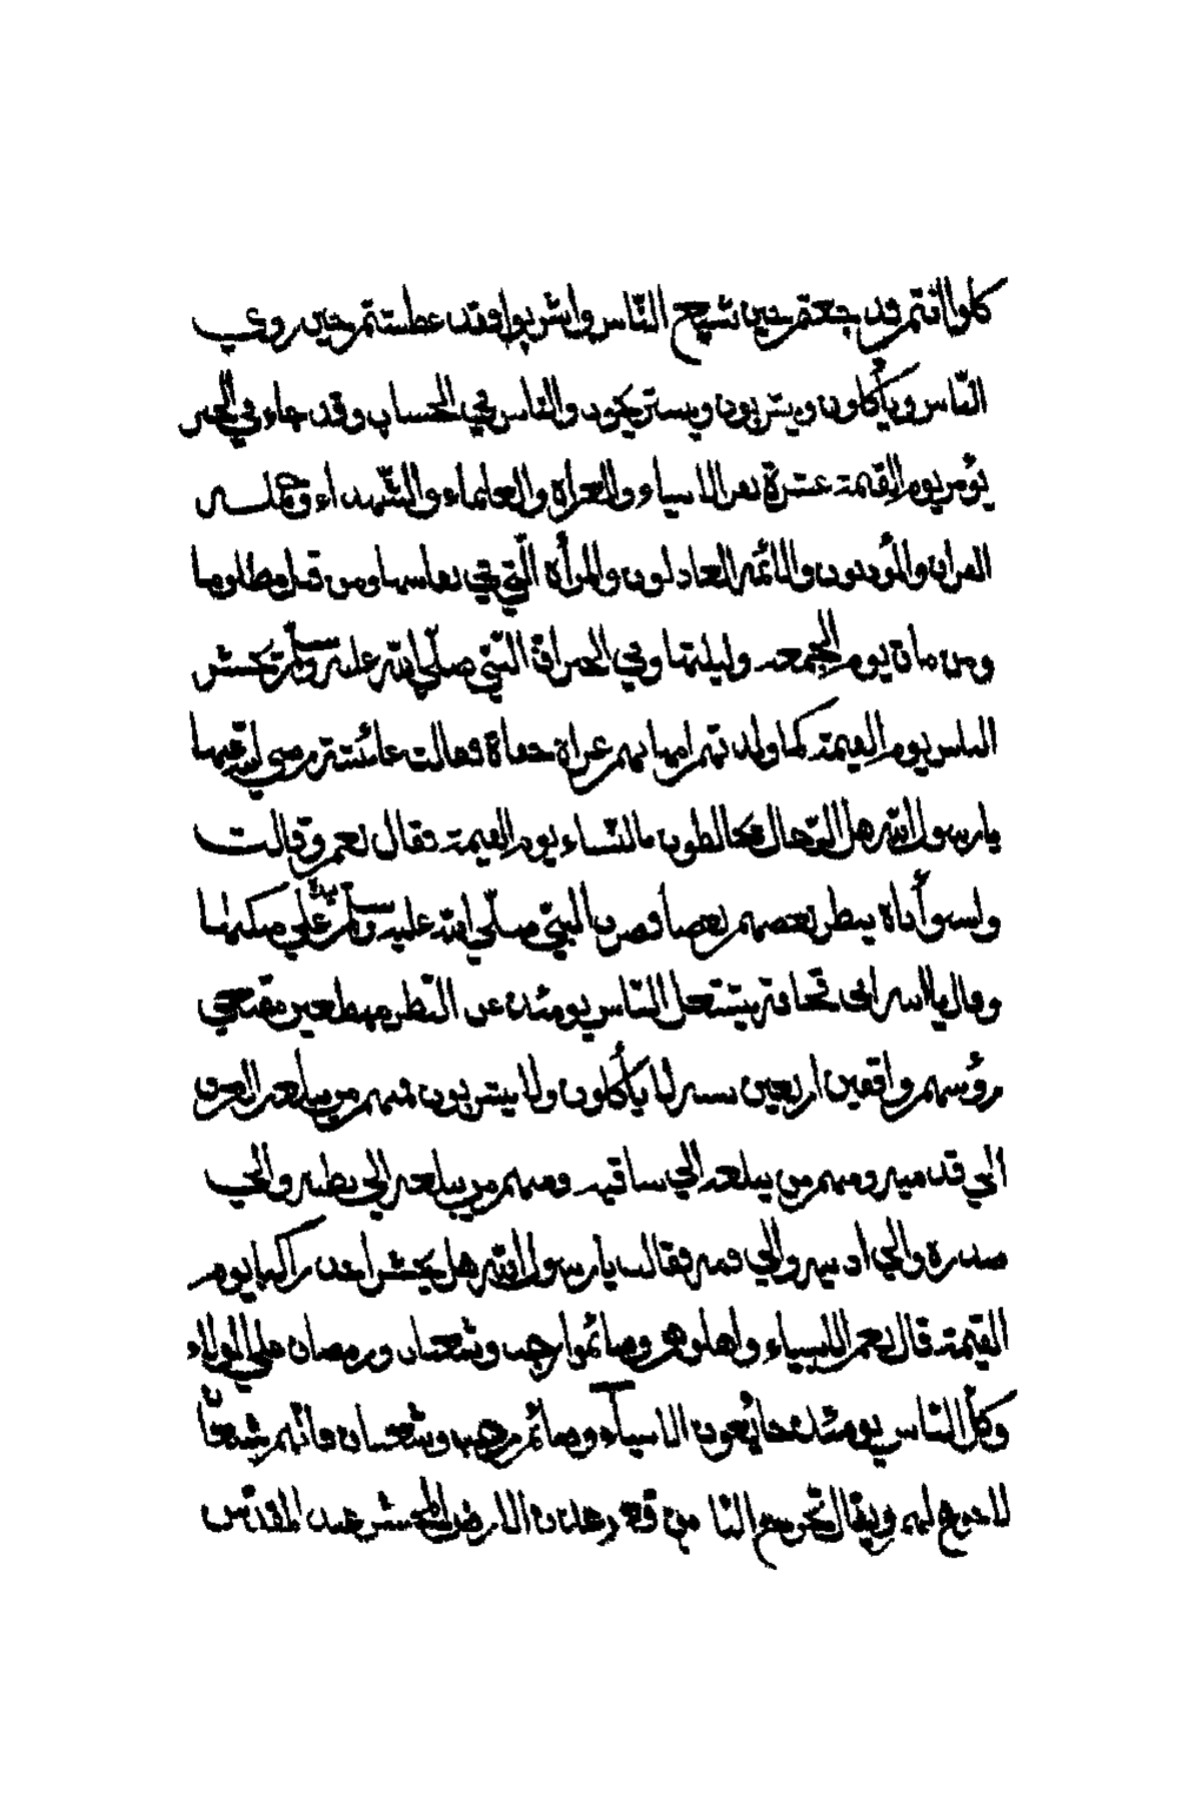 كلوا انتم قد جعتم حين شبع الناس واشربوا فقد عطشتم حين روي
الناس ويأكلون ويشربون ويستريحون والناس في الحساب وقد جاء في الخبر
يوم القيمة عشرة نفر الانبياء والغزاة والعلماء والشهداء وحملة
القران والمؤذنون والائمة العادلون والمرأة التي في نفاسها ومن قتل مظلوما
ومن مات يوم الجمعه وليلتها وفي الخبر ان النبي صلي الله عليه وسلم تحشر
الناس يوم القيمة كما ولدتهم امهاتهم عراة حفاة فقالت عائشة رضي الله عنها
يا رسول الله هل الرجال مخالطون بالنساء يوم القيمة فقال نعم وقالت
واسوأتاه ينظر بعضهم بعضا فضرب النبي صلي الله عليه وسلم يده علي منكبها
وقال يا ابنة ابي قحافة يشتغل الناس يومئذ عن النظر مهطعين مقنعي
رؤسهم واقفين اربعين سنة لا يأكلون ولا يشربون فمنهم من يبلغه العرق
الي قدميه ومنهم من يبلغه الي ساقيه ومنهم من يبلغه الي بطنه والي
صدره والي اذنيه والي فمه فقالت يا رسول الله هل يحشر احد راكبا يوم
القيمة قال نعم الانبياء واهلوهم وصائموا رجب وشعبان ورمضان علي الولاء
وكل الناس يومئذ جائعون الا الانبياء وصائم رجب وشعبان فانهم شبعا
لا جوع لهم ويقال من الارض المحشر عند المقدس